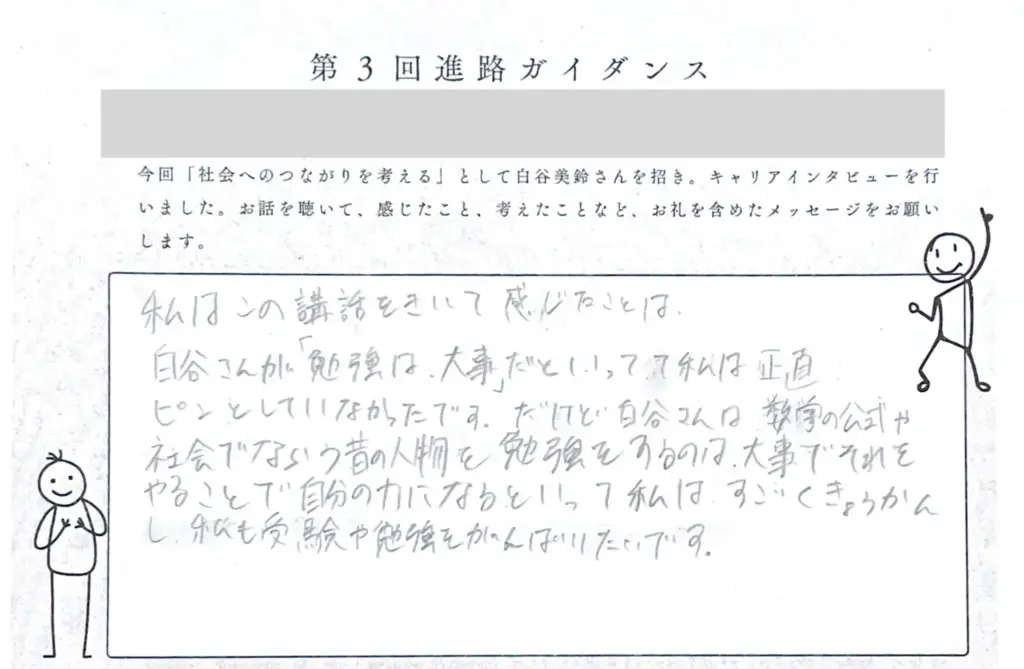 第3回進路ガイダンス
今回「社会へのつながりを考える」として白谷美鈴さんを招き。キャリアインタビューを行
いました。お話を聴いて、感じたこと、考えたことなど、お礼を含めたメッセージをお願い
します。
私はこの講話をきいて感じたことは、
白谷さんが「勉強は、大事」だといってて私は正直
ピンとしていなかったです。だけど白谷さんは数学の公式や
社会でならいう昔の人物を勉強をするのは、大事でそれを
やることで自分の力になるといって私は、すごくきょうかん
し、私も受験や勉強をがんばりたいです。